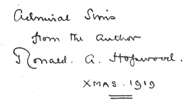 Admiral Sims
from the author
Ronald. A. Hopwood.
XMAS. 1919